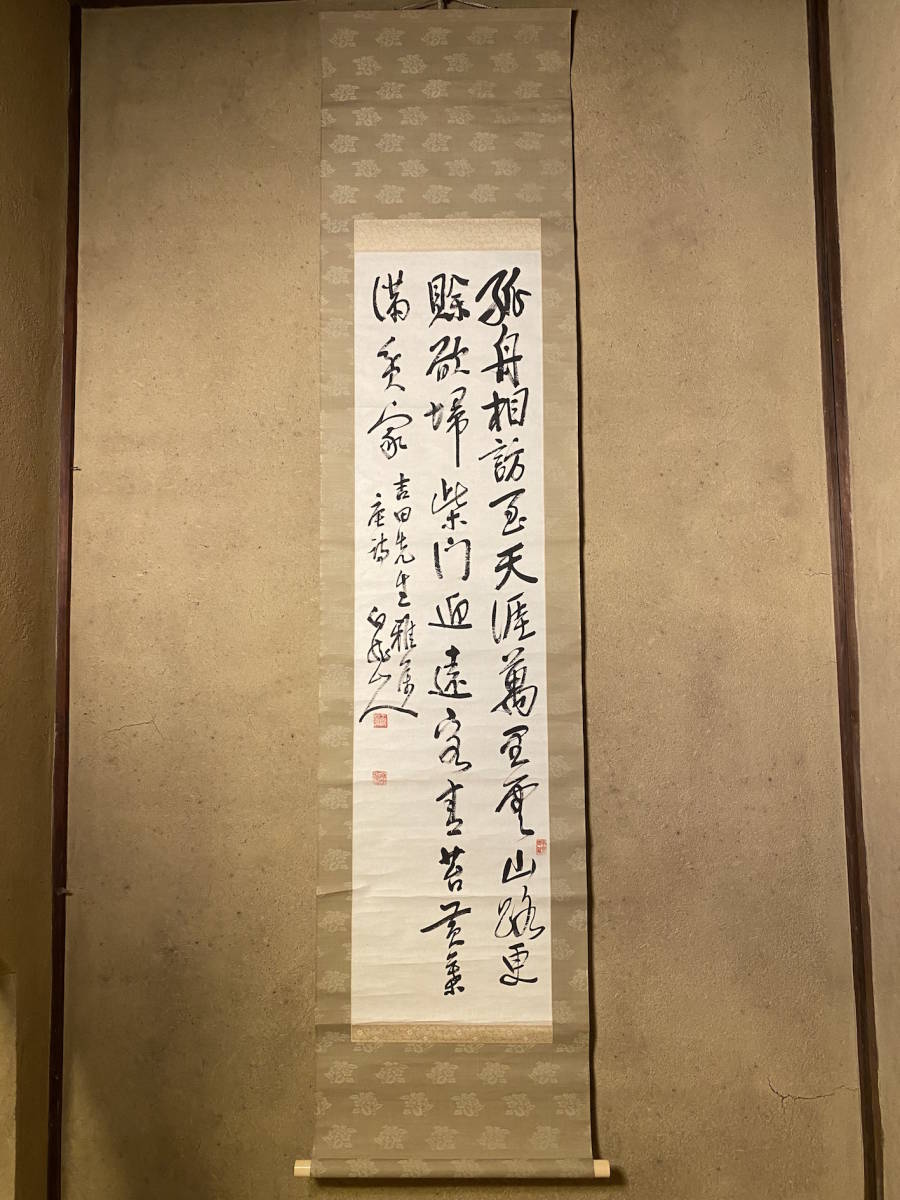 孤舟相訪至天涯萬里雲山路更
賖欲埽柴門迎遠客青苔黄葉
滿貧家
吉田先生雅屬
唐詩 白龍山人